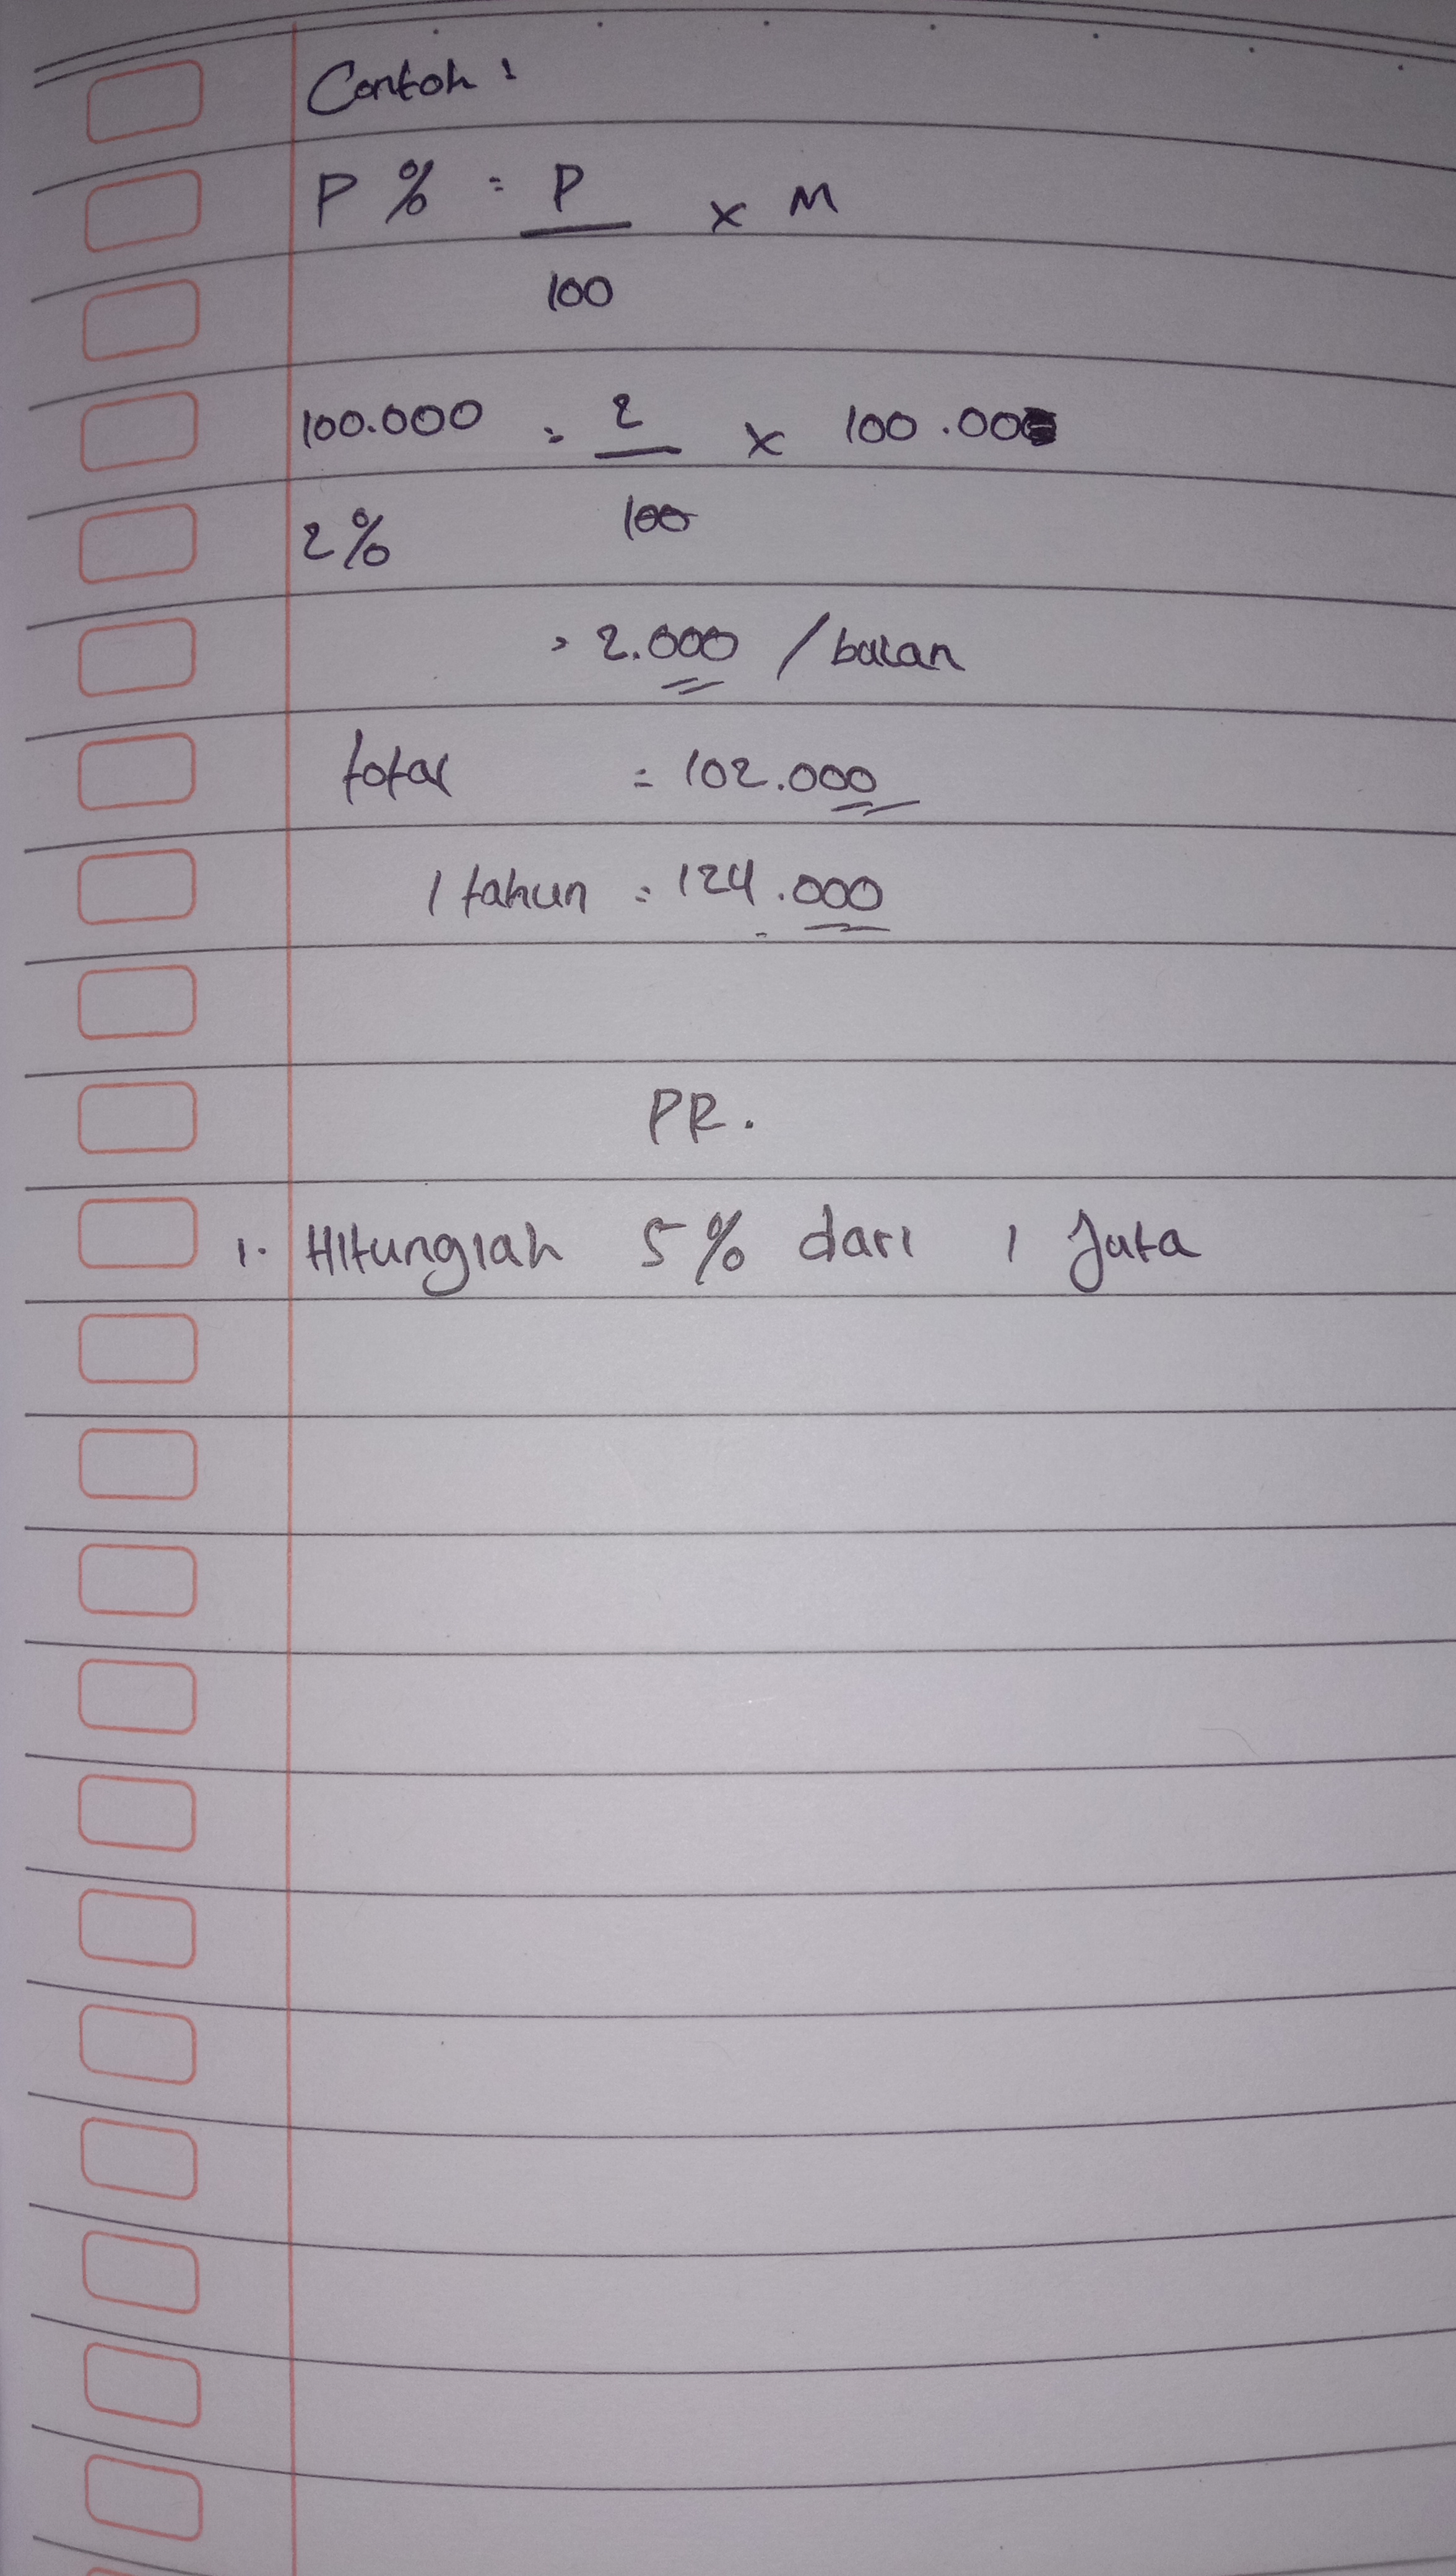 Contoh :
P % = P/100 x M
100.000 = 2/100 x 100.000
2%
= 2.000 / bulan
total = 102.000
1 tahun = 124.000
PR.
1. Hitunglah 5% dari 1 Juta